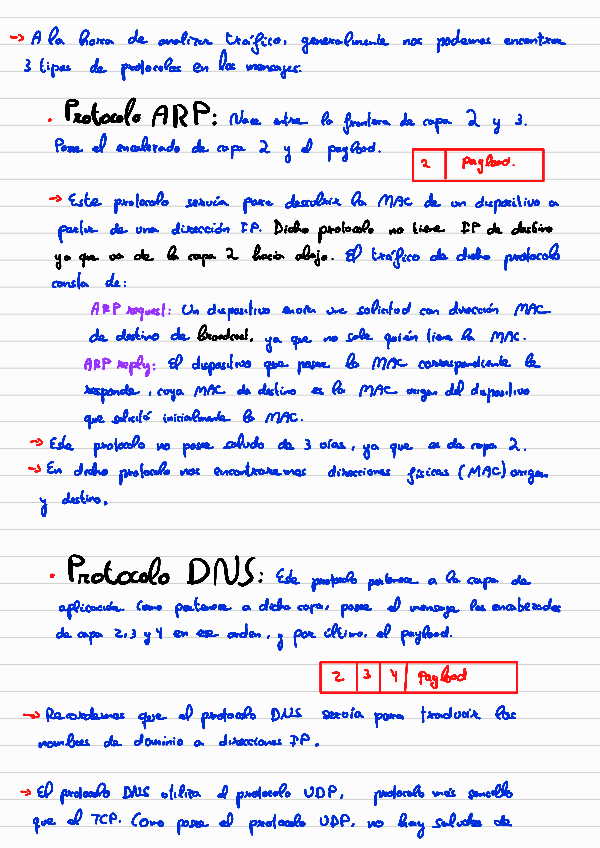 → A la hora de analizar tráfico, generalmente nos podemos encontrar
3 tipos de protocolos en los mensajes.
· Protocolo ARP: Nace entre la frontera de capa 2 y 3.
Posee el encabezado de capa 2 y el payload.
2 payload.
→ Este protocolo servía para descubrir la MAC de un dispositivo a
partir de una dirección IP. Dicho protocolo no tiene IP de destino
ya que va de la capa 2 hacia abajo. El tráfico de dicho protocolo
consta de:
ARP request: Un dispositivo envía una solicitud con dirección MAC
de destino de broadcast, ya que no sabe quién tiene la MAC.
ARP reply: El dispositivo que posee la MAC correspondiente le
responde, cuya MAC de destino es la MAC origen del dispositivo
que solicitó inicialmente la MAC.
→ Este protocolo no posee saludo de 3 vías, ya que es de capa 2.
→ En dicho protocolo nos encontraremos direcciones físicas (MAC) origen
y destino.
· Protocolo DNS: Este protocolo pertenece a la capa de
aplicación. Como pertenece a dicha capa, posee el mensaje los encabezados
de capa 2, 3 y 4 en ese orden, y por último, el payload.
2 3 4 payload
→ Recordemos que el protocolo DNS servía para traducir los
nombres de dominio a direcciones IP.
→ El protocolo DNS utiliza el protocolo UDP, protocolo más sencillo
que el TCP. Como posee el protocolo UDP, no hay saludos de